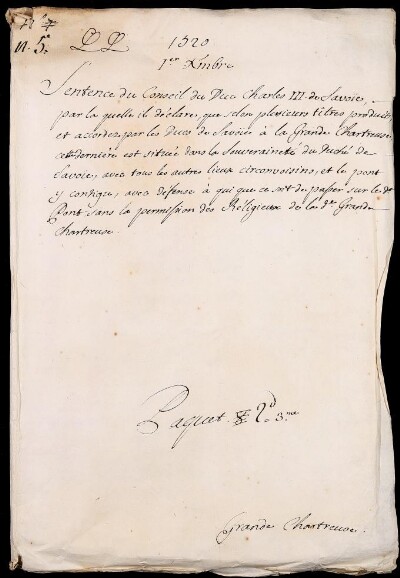 n. 5.
PP 1520
1.er Xmbre
Sentence du Conseil du Duc Charles III. de Savoie,
par la quelle il déclare, que selon plusieurs titres produits,
et accordez par les Ducs de Savoie à la Grande Chartreuse
cette derniere est située dans la Souveraineté du Duché de
Savoie, avec tous les autres lieux circonvoisins, et le pont
y contigu, avec défense à qui que ce soit de passer sur le dt
Pont sans la permission des Réligieux de la de Grande
Chartreuse.
Paquet 2d 3.me
Grande Chartreuse.